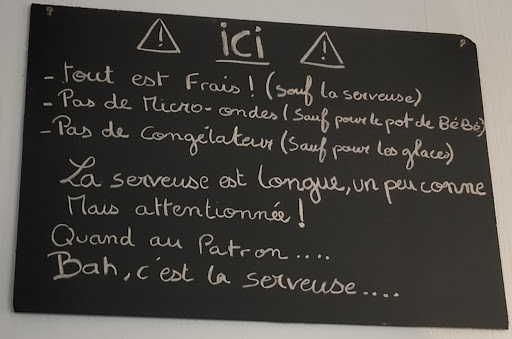 ⚠ ici ⚠
- tout est Frais ! (sauf la serveuse)
- Pas de Micro-ondes (Sauf pour le pot de BéBé)
- Pas de Congélateur (Sauf pour les glaces)
La serveuse est longue, un peu conne
Mais attentionnée !
Quand au Patron ....
Bah, c'est la serveuse ....